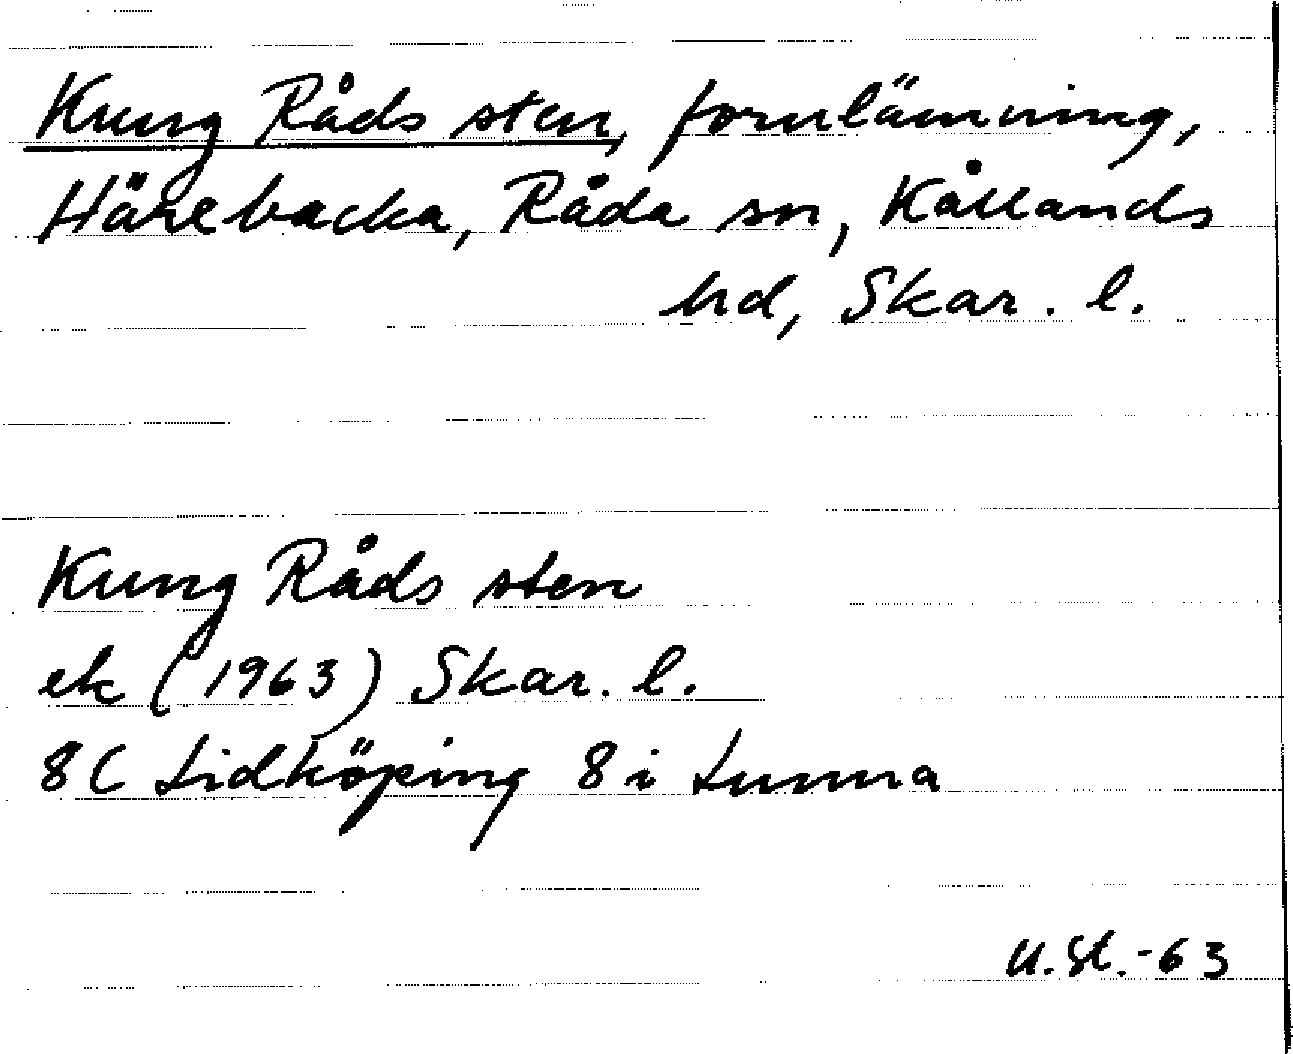 Kung Råds sten, fornlämning,
Härebacka, Råda sn, Kållands
hd, Skar. l.
Kung Råds sten
ek (1963) Skar. l.
8C Lidköping 8 i Lunna
U.St.-63